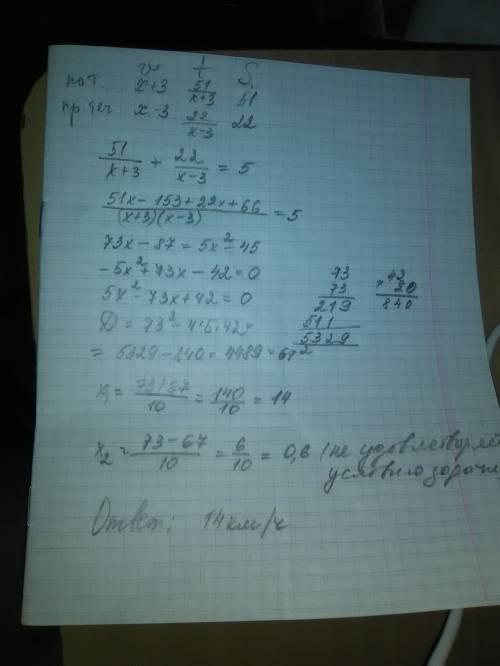 v t S
по т. x+3 51/(x+3) 51
пр теч x-3 22/(x-3) 22
51/(x+3) + 22/(x-3) = 5
(51x - 153 + 22x + 66)/((x+3)(x-3)) = 5
73x - 87 = 5x² - 45
-5x² + 73x - 42 = 0
5x² - 73x + 42 = 0
D = 73² - 4·5·42 =
= 5329 - 840 = 4489 = 67²
73
73
219
511
5329
42
× 20
840
x₁ = (73+67)/10 = 140/10 = 14
x₂ = (73-67)/10 = 6/10 = 0,6 (не удовлетворяе
условию задачи
Ответ: 14 км/ч